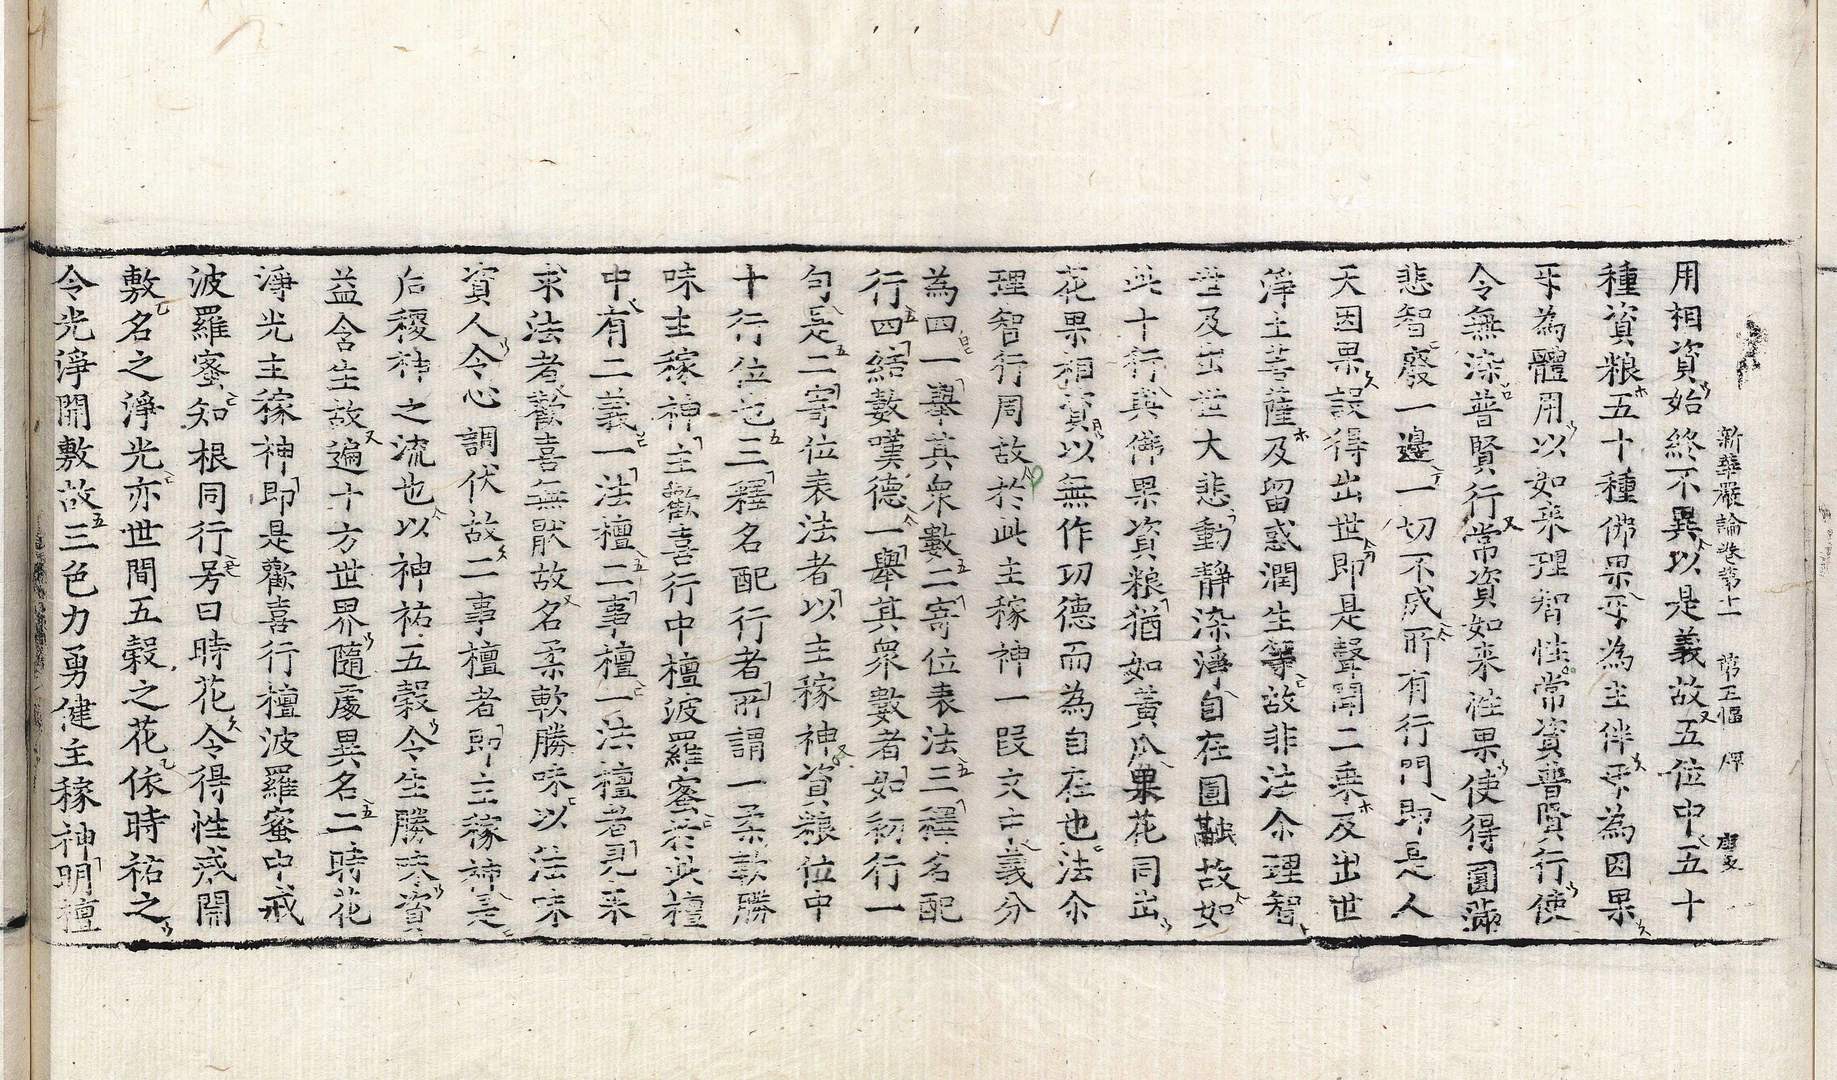 新華嚴論卷第十一 第五幅
用相資始終不異以是義故五位中五十
種資粮五十種佛果㸦為主伴㸦為因果
㸦為體用以如来理智性常資普賢行使
令無染普賢行常資如来性果使得圎滿
悲智廢一邊一切不成所有行門即是人
天因果設得出世即是聲聞二乘及出世
淨土菩薩及留惑潤生等故非法尒理智
世及出世大悲動静染淨自在圓融故如
此十行與佛果資粮猶如黄瓜果花同出
花果相資以無作功德而為自在也法尒
理智行周故於此主稼神一段文主義分
為四一舉其衆數二寄位表法三釋名配
行四結數嘆德一舉其衆數者如初行一
句是二寄位表法者以主稼神資粮位中
十行位也三釋名配行者所謂一柔軟勝
味主稼神主歡喜行中檀波羅蜜於此檀
中有二義一法檀二事檀一法檀者見来
求法者歡喜無猒故名柔軟勝味以法味
資人令心調伏故二事檀者即主稼神是
后稷神之流也以神祐五穀令生勝味資
益含生故遍十方世界隨處異名二時花
淨光主稼神即是歡喜行檀波羅蜜中戒
波羅蜜知根同行号曰時花令得性戒開
敷名之淨光亦世間五穀之花依時祐之
令光淨開敷故三色力勇健主稼神明檀